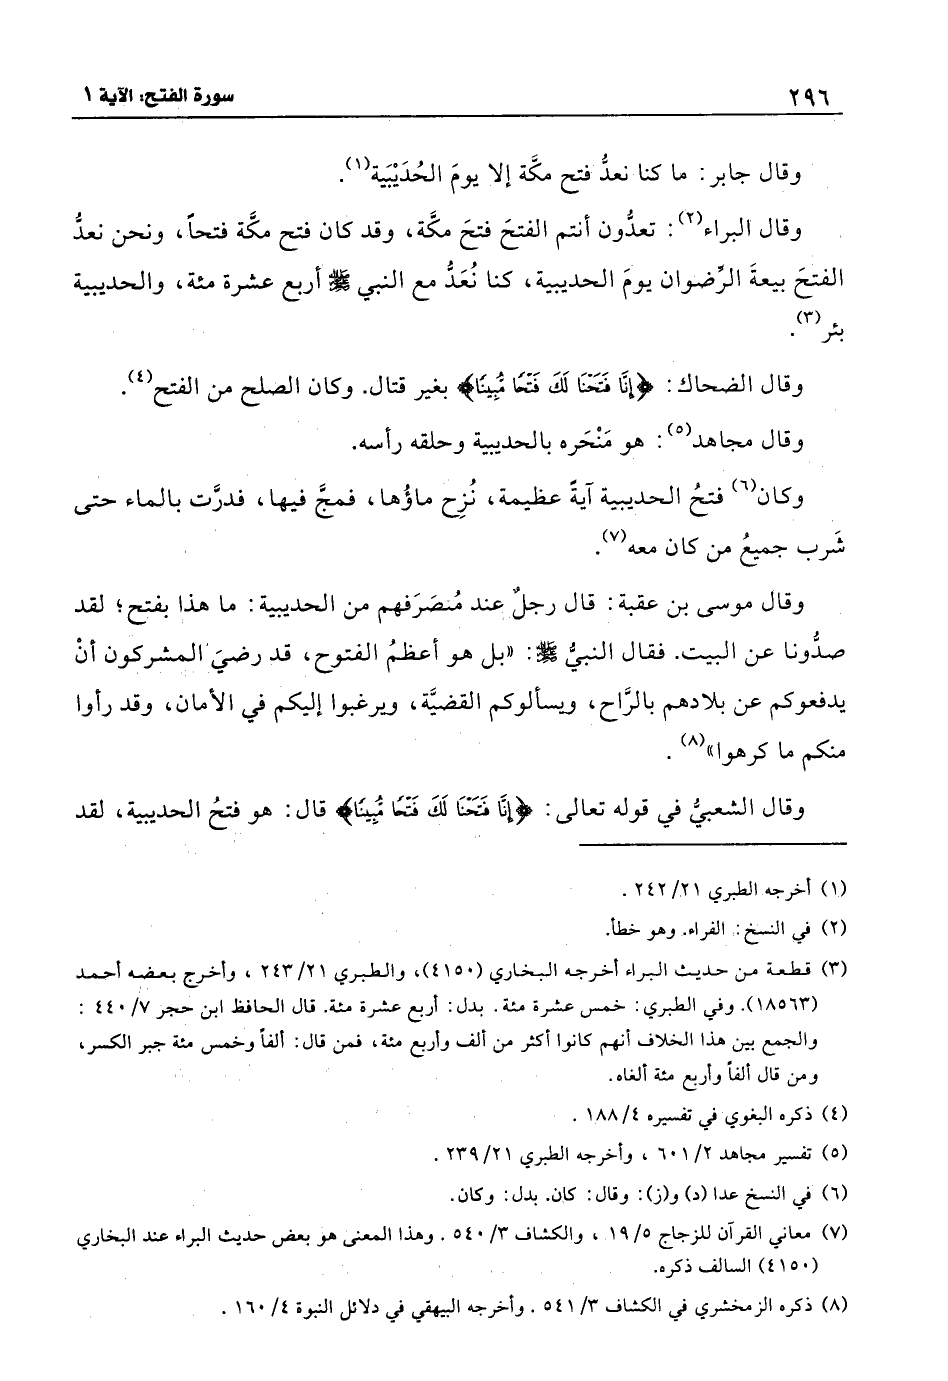 ٢٩٦ سورة الفتح: الآية ١
وقال جابر: ما كنا نعدُّ فتح مكَّة إلا يومَ الحُدَيْبَية(١).
وقال البراء(٢): تعدُّون أنتم الفتحَ فتحَ مكَّة، وقد كان فتح مكَّة فتحاً، ونحن نعدُّ
الفتحَ بيعةَ الرِّضوان يومَ الحديبية، كنا نُعَدُّ مع النبي ﷺ أربع عشرة مئة، والحديبية
بئر(٣).
وقال الضحاك: ﴿إِنَّا فَتَحْنَا لَكَ فَتْحًا مُّبِينًا﴾ بغير قتال. وكان الصلح من الفتح(٤).
وقال مجاهد(٥): هو مَنْحَره بالحديبية وحلقه رأسه.
وكان(٦) فتحُ الحديبية آيةً عظيمة، نُزِح ماؤُها، فمجَّ فيها، فدرَّت بالماء حتى
شَرب جميعُ من كان معه(٧).
وقال موسى بن عقبة: قال رجلٌ عند مُنصَرَفهم من الحديبية: ما هذا بفتح؛ لقد
صدُّونا عن البيت. فقال النبيُّ ﷺ: «بل هو أعظمُ الفتوح، قد رضيَ المشركون أنْ
يدفعوكم عن بلادهم بالرَّاح، ويسألوكم القضيَّة، ويرغبوا إليكم في الأمان، وقد رأوا
منكم ما كرهوا»(٨).
وقال الشعبيُّ في قوله تعالى: ﴿إِنَّا فَتَحْنَا لَكَ فَتْحًا مُّبِينًا﴾ قال: هو فتحُ الحديبية، لقد
(١) أخرجه الطبري ٢٤٢/٢١ .
(٢) في النسخ: الفراء. وهو خطأ.
(٣) قطعة من حديث البراء أخرجه البخاري (٤١٥٠)، والطبري ٢٤٣/٢١ ، وأخرج بعضه أحمد
(١٨٥٦٣). وفي الطبري: خمس عشرة مئة. بدل: أربع عشرة مئة. قال الحافظ ابن حجر ٤٤٠/٧ :
والجمع بين هذا الخلاف أنهم كانوا أكثر من ألف وأربع مئة، فمن قال: ألفاً وخمس مئة جبر الكسر،
ومن قال ألفاً وأربع مئة ألغاه.
(٤) ذكره البغوي في تفسيره ١٨٨/٤ .
(٥) تفسير مجاهد ٦٠١/٢ ، وأخرجه الطبري ٢٣٩/٢١ .
(٦) في النسخ عدا (د) و(ز): وقال: كان. بدل: وكان.
(٧) معاني القرآن للزجاج ١٩/٥ ، والكشاف ٥٤٠/٣ . وهذا المعنى هو بعض حديث البراء عند البخاري
(٤١٥٠) السالف ذكره.
(٨) ذكره الزمخشري في الكشاف ٥٤١/٣ . وأخرجه البيهقي في دلائل النبوة ١٦٠/٤ .